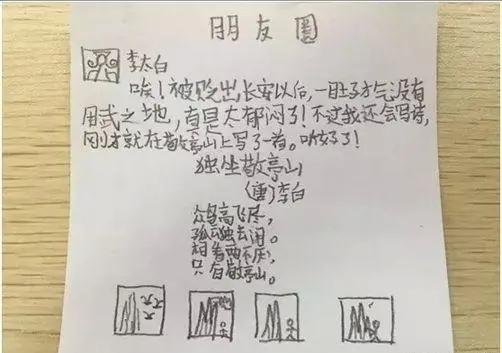 朋友圈
李太白
唉！被贬出长安以后,一肚子才气没有
用武之地,真是太郁闷了！不过我还会写诗,
刚才就在敬亭山上写了一首。听好了！
独坐敬亭山
(唐)李白
众鸟高飞尽,
孤云独去闲。
相看两不厌,
只有敬亭山。